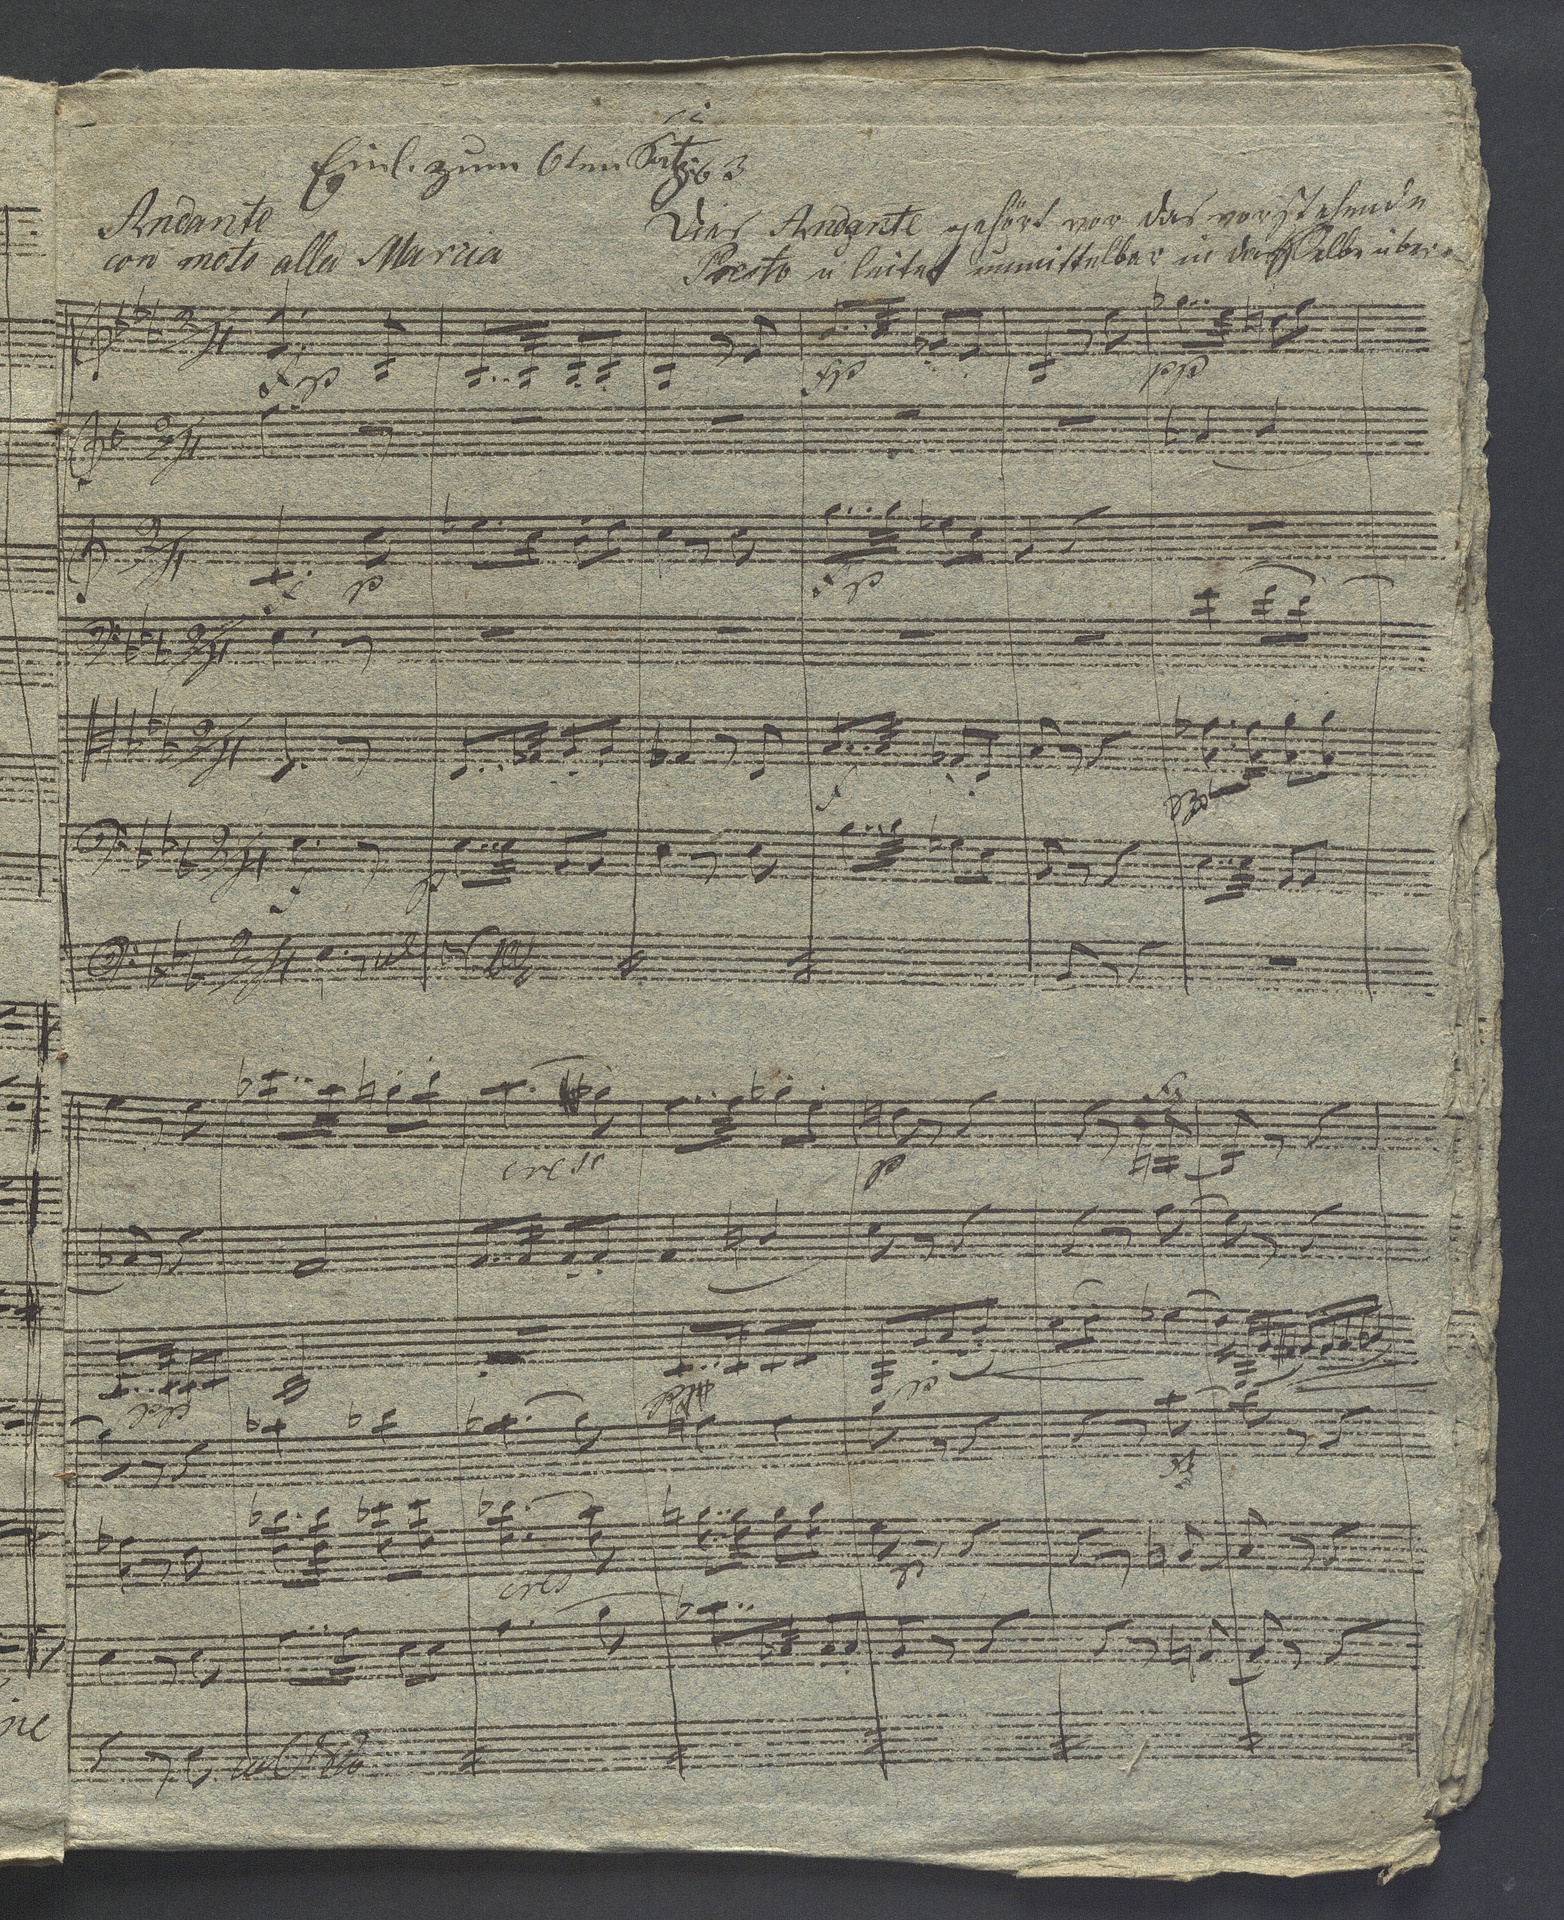 Einl. zum 6ten Satz
63
Andante
con moto alla Marcia
Dies Andante gehört vor das vorstehende
Presto u leitet unmittelbar in dasselbe über.
fp
fp
pp
p
fp
f
f
p
cresc
p
cres
p